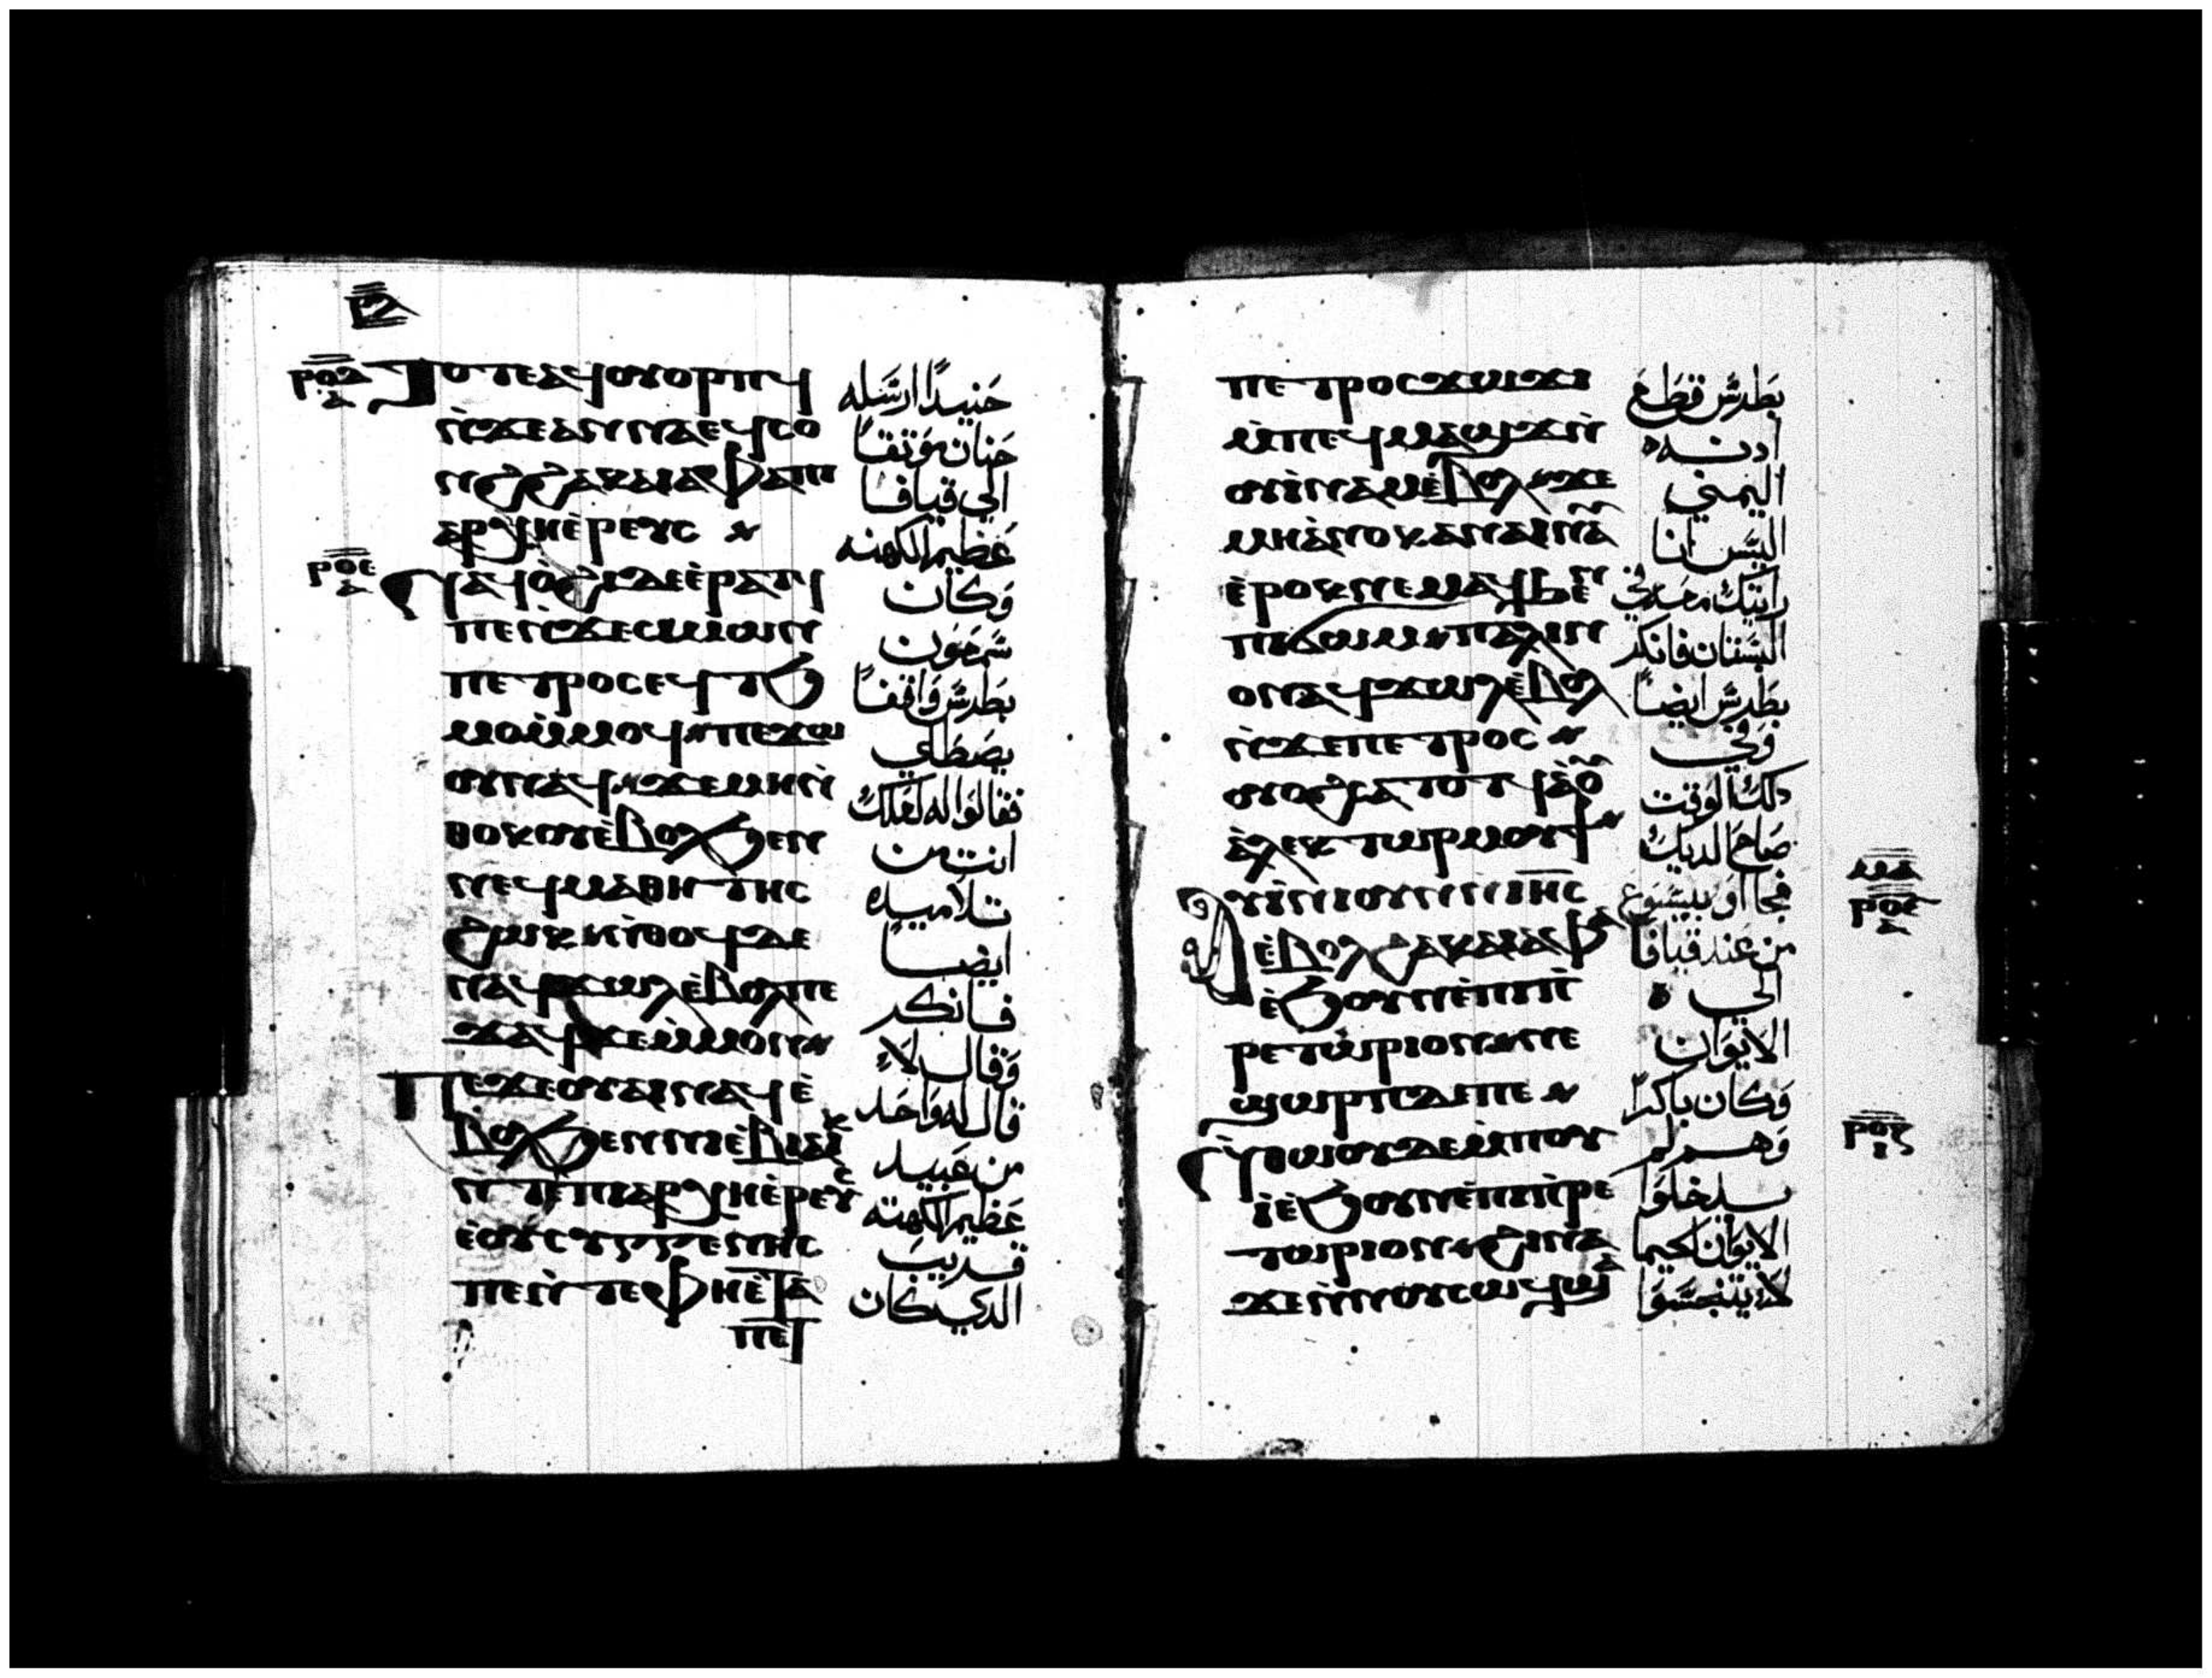 ⲣ︦ⲗ︦
ⲣⲟⲇ
ⲁ
ⲧⲟⲧⲉ ⲁϥⲟⲩⲟⲣⲡϥ
ⲛ̀ϫⲉ ⲁⲛⲛⲁ ⲉϥⲥⲟ
ⲛϩ ϩⲁ ⲕⲁⲓⲁⲫⲁ ⲡⲓ
ⲁⲣⲭⲏⲉ̀ⲣⲉⲩⲥ
ⲣⲟⲉ
ⲁ
ⲛⲁϥⲟ̀ϩⲓ ⲇⲉ ⲉ̀ⲣⲁⲧϥ
ⲡⲉ ⲛ̀ϫⲉ ⲥⲓⲙⲱⲛ
ⲡⲉⲧⲣⲟⲥ ⲉϥⲧϧ
ⲙⲟ ⲙ̀ⲙⲟϥ ⲡⲉϫⲱ
ⲟⲩ ⲛⲁϥ ϫⲉ ⲙⲏ ⲛ̀
ⲑⲟⲕ ⲟⲩⲉ̀ⲃⲟⲗ ϧⲉⲛ
ⲛⲉϥⲙⲁⲑⲏⲧⲏⲥ
ϩⲱⲕ ⲛ̀ⲑⲟϥ ⲇⲉ
ⲛⲁϥϫⲱⲗ ⲉ̀ⲃⲟⲗ ⲡⲉ
ϫⲁϥ ϫⲉ ⲙ̀ⲙⲟⲛ
ⲡⲉϫⲉ ⲟⲩⲁⲓ ⲛⲁϥ ⲉ̀
ⲃⲟⲗ ϧⲉⲛ ⲛⲓⲉ̀ⲃⲓⲁⲓⲕ
ⲛⲧⲉ ⲡⲓⲁⲣⲭⲏⲉ̀ⲣⲉⲩⲥ
ⲉ̀ⲟⲩⲥⲩⲅⲅⲉⲛⲏⲥ
ⲡⲉ ⲛ̀ⲧⲉ ⲫⲏ ⲉ̀ⲧⲁ
ⲡⲉⲧ
حَنيداً ارسَله
حَنان موَتقاً
الي قيافا
عَظيم الكهنه
وَكان
سَمعَون
بطرسَ وَاقفاً
يصَطلي
فقالوَا له لعَلك
انت من
تلاميده
ايضاً
فانكر
وَقال لاَ
قال له وَاحَد
من عَبيد
عَظيم الكهنه
قريب
الدي كان
ⲡⲉⲧⲣⲟⲥ ϫⲱϫⲓ
ⲙ̀ⲡⲉϥⲙⲁϣϫ ⲛ̀
ⲟⲩⲓ̀ⲛⲁⲙ ⲉ̀ⲃⲟⲗ ϫⲉ
ⲙⲏ ⲁ̀ⲛⲟⲕ ⲁⲛ ⲁⲓⲛⲁⲩ
ⲉ̀ⲣⲟⲕ ⲛⲉⲙⲁϥ ϧⲉⲛ
ⲡⲓϭⲱⲙ ⲡⲁⲗⲓⲛ
ⲟⲛ ⲁϥϫⲱⲗ ⲉ̀ⲃⲟⲗ
ⲛ̀ϫⲉ ⲡⲉⲧⲣⲟⲥ
ⲟⲩⲟϩ ⲥⲁⲧⲟⲧϥ ⲁ̀ⲟⲩ
ⲁ̀ⲗⲉⲕⲧⲱⲣ ⲙⲟⲩϯ
ⲁⲩⲓ̀ⲛⲓ ⲟⲩⲛ ⲛⲓⲏⲥ
ⲉ̀ⲃⲟⲗ ϩⲁ ⲕⲁⲓⲁⲫⲁ
ⲉ̀ϧⲟⲩⲛ ⲉ̀ⲡⲓⲡ̀
ⲣⲉⲧⲱⲣⲓⲟⲛ ⲛⲉ
ϣⲱⲣⲡ ⲇⲉ ⲡⲉ
ⲛ̀ⲑⲱⲟⲩ ⲇⲉ ⲙ̀ⲡⲟⲩ
ⲓ̀ ⲉ̀ϧⲟⲩⲛ ⲉ̀ⲡⲓⲡ̀ⲣⲉ
ⲧⲱⲣⲓⲟⲛ ϩⲓⲛⲁ
ϫⲉ ⲛ̀ⲛⲟⲩⲥⲱϥ ϣⲁ
بطرسَ قطع
ادنه
اليمني
اليسَ انا
رايتك معه في
البسَتان فانكر
بطرسَ ايضاً
وَفي
دلك الوَقت
صَاحَ الديك
فجاا وَبيسَوَع
من عَند قيافا
الي
الايوَان
وَكان باكراً
وَهم لم
يدخلوَا
الايوَان لكيما
لاَ يتنجسَوَا
ⲙⲁ
ⲣⲟⲋ
ⲁ
ⲣⲟⲍ
ⲓ